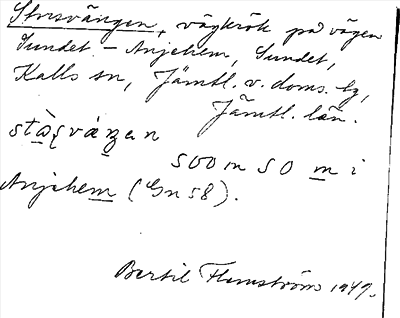 Storsvängen, vägkrök på vägen
Sundet - Anjehem, Sundet,
Kalls sn, Jämtl. v. doms. tg,
Jämtl. län.
500 m SO m i
Anjehem (Gn 58).
Bertil Flemström 1949.